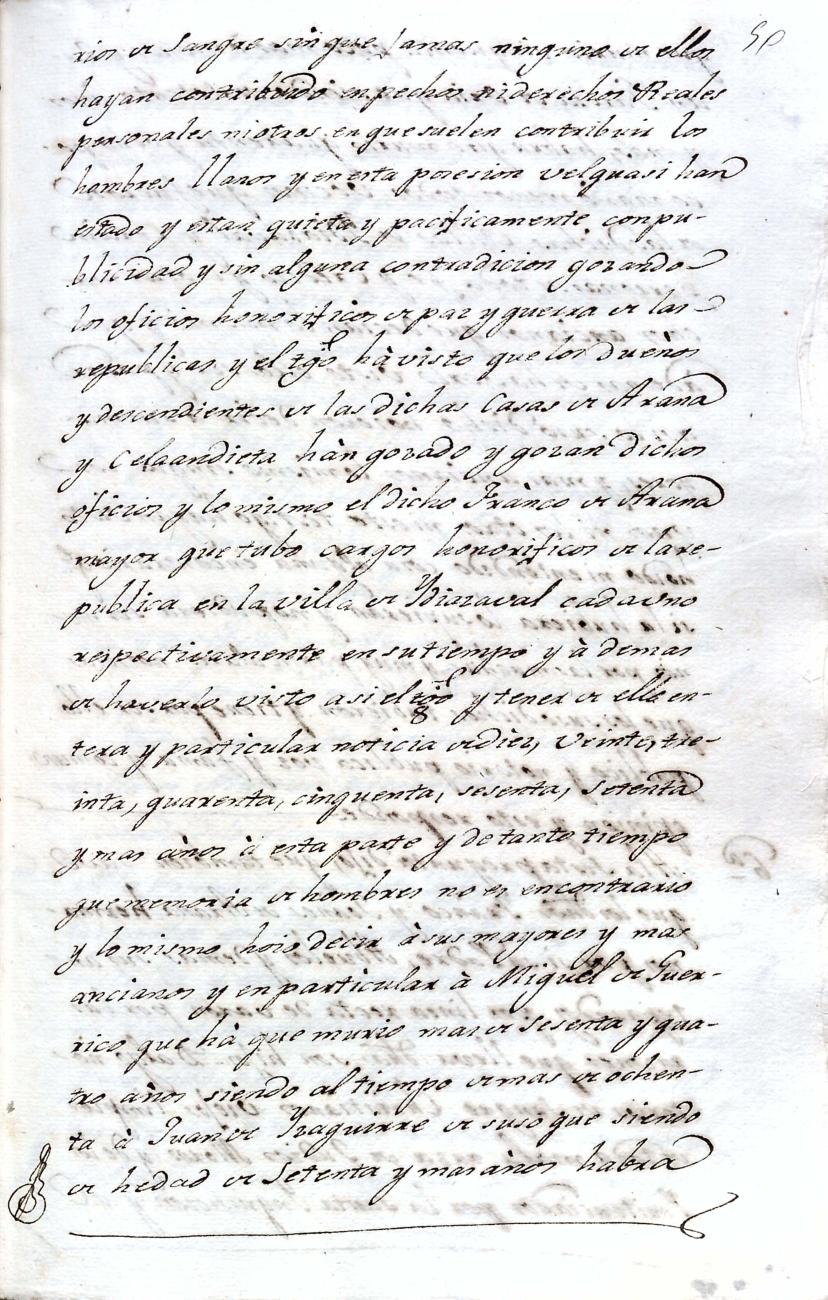 50
rios de sangre sin que jamas ninguno de ellos
hayan contribuido en pechos ni derechos Reales
personales ni otros en que suelen contribuir los
hombres llanos y en esta posesion velquasi han
estado y estan quieta y pacificamente con pu-
blicidad y sin alguna contradicion gozando
los oficios honorificos de paz y guerra de las
republicas y el tgo hà visto que los dueños
y descendientes de las dichas Casas de Arana
y Celaandieta hàn gozado y gozan dichos
oficios y lo mismo el dicho Franco de Arana
mayor que tubo cargos honorificos de la re-
publica en la villa de Ydiazaval cada uno
respectivamente en su tiempo y à demas
de haverlo visto asi el tgo y tener de ello en-
tera y particular noticia de diez, veinte, tre-
inta, quarenta, cinquenta, sesenta, setenta
y mas años à esta parte y de tanto tiempo
que memoria de hombres no es encontrario
y lo mismo hoio decir à sus mayores y mas
ancianos y en particular à Miguel de Guer-
rico que hà que murio mas de sesenta y qua-
tro años siendo al tiempo de mas de ochen-
ta à Juan de Yzaguirre de suso que siendo
de hedad de setenta y mas años habra